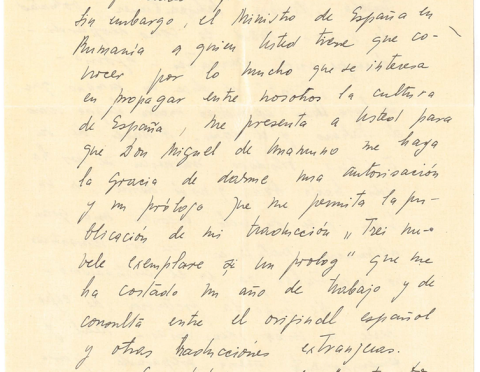 Sin embargo, el Ministro de España en
Rumanía a quien Usted tiene que co-
nocer por lo mucho que se interesa
en propagar entre nosotros la cultura
de España, me presenta a Usted para
que Don Miguel de Unamuno me haga
la gracia de darme una autorisación
y un prólogo que me permita la pu-
blicación de mi traducción „Trei nu-
vele exemplare și un prolog" que me
ha costado un año de trabajo y de
consulta entre el original español
y otras traducciones extranjeras.